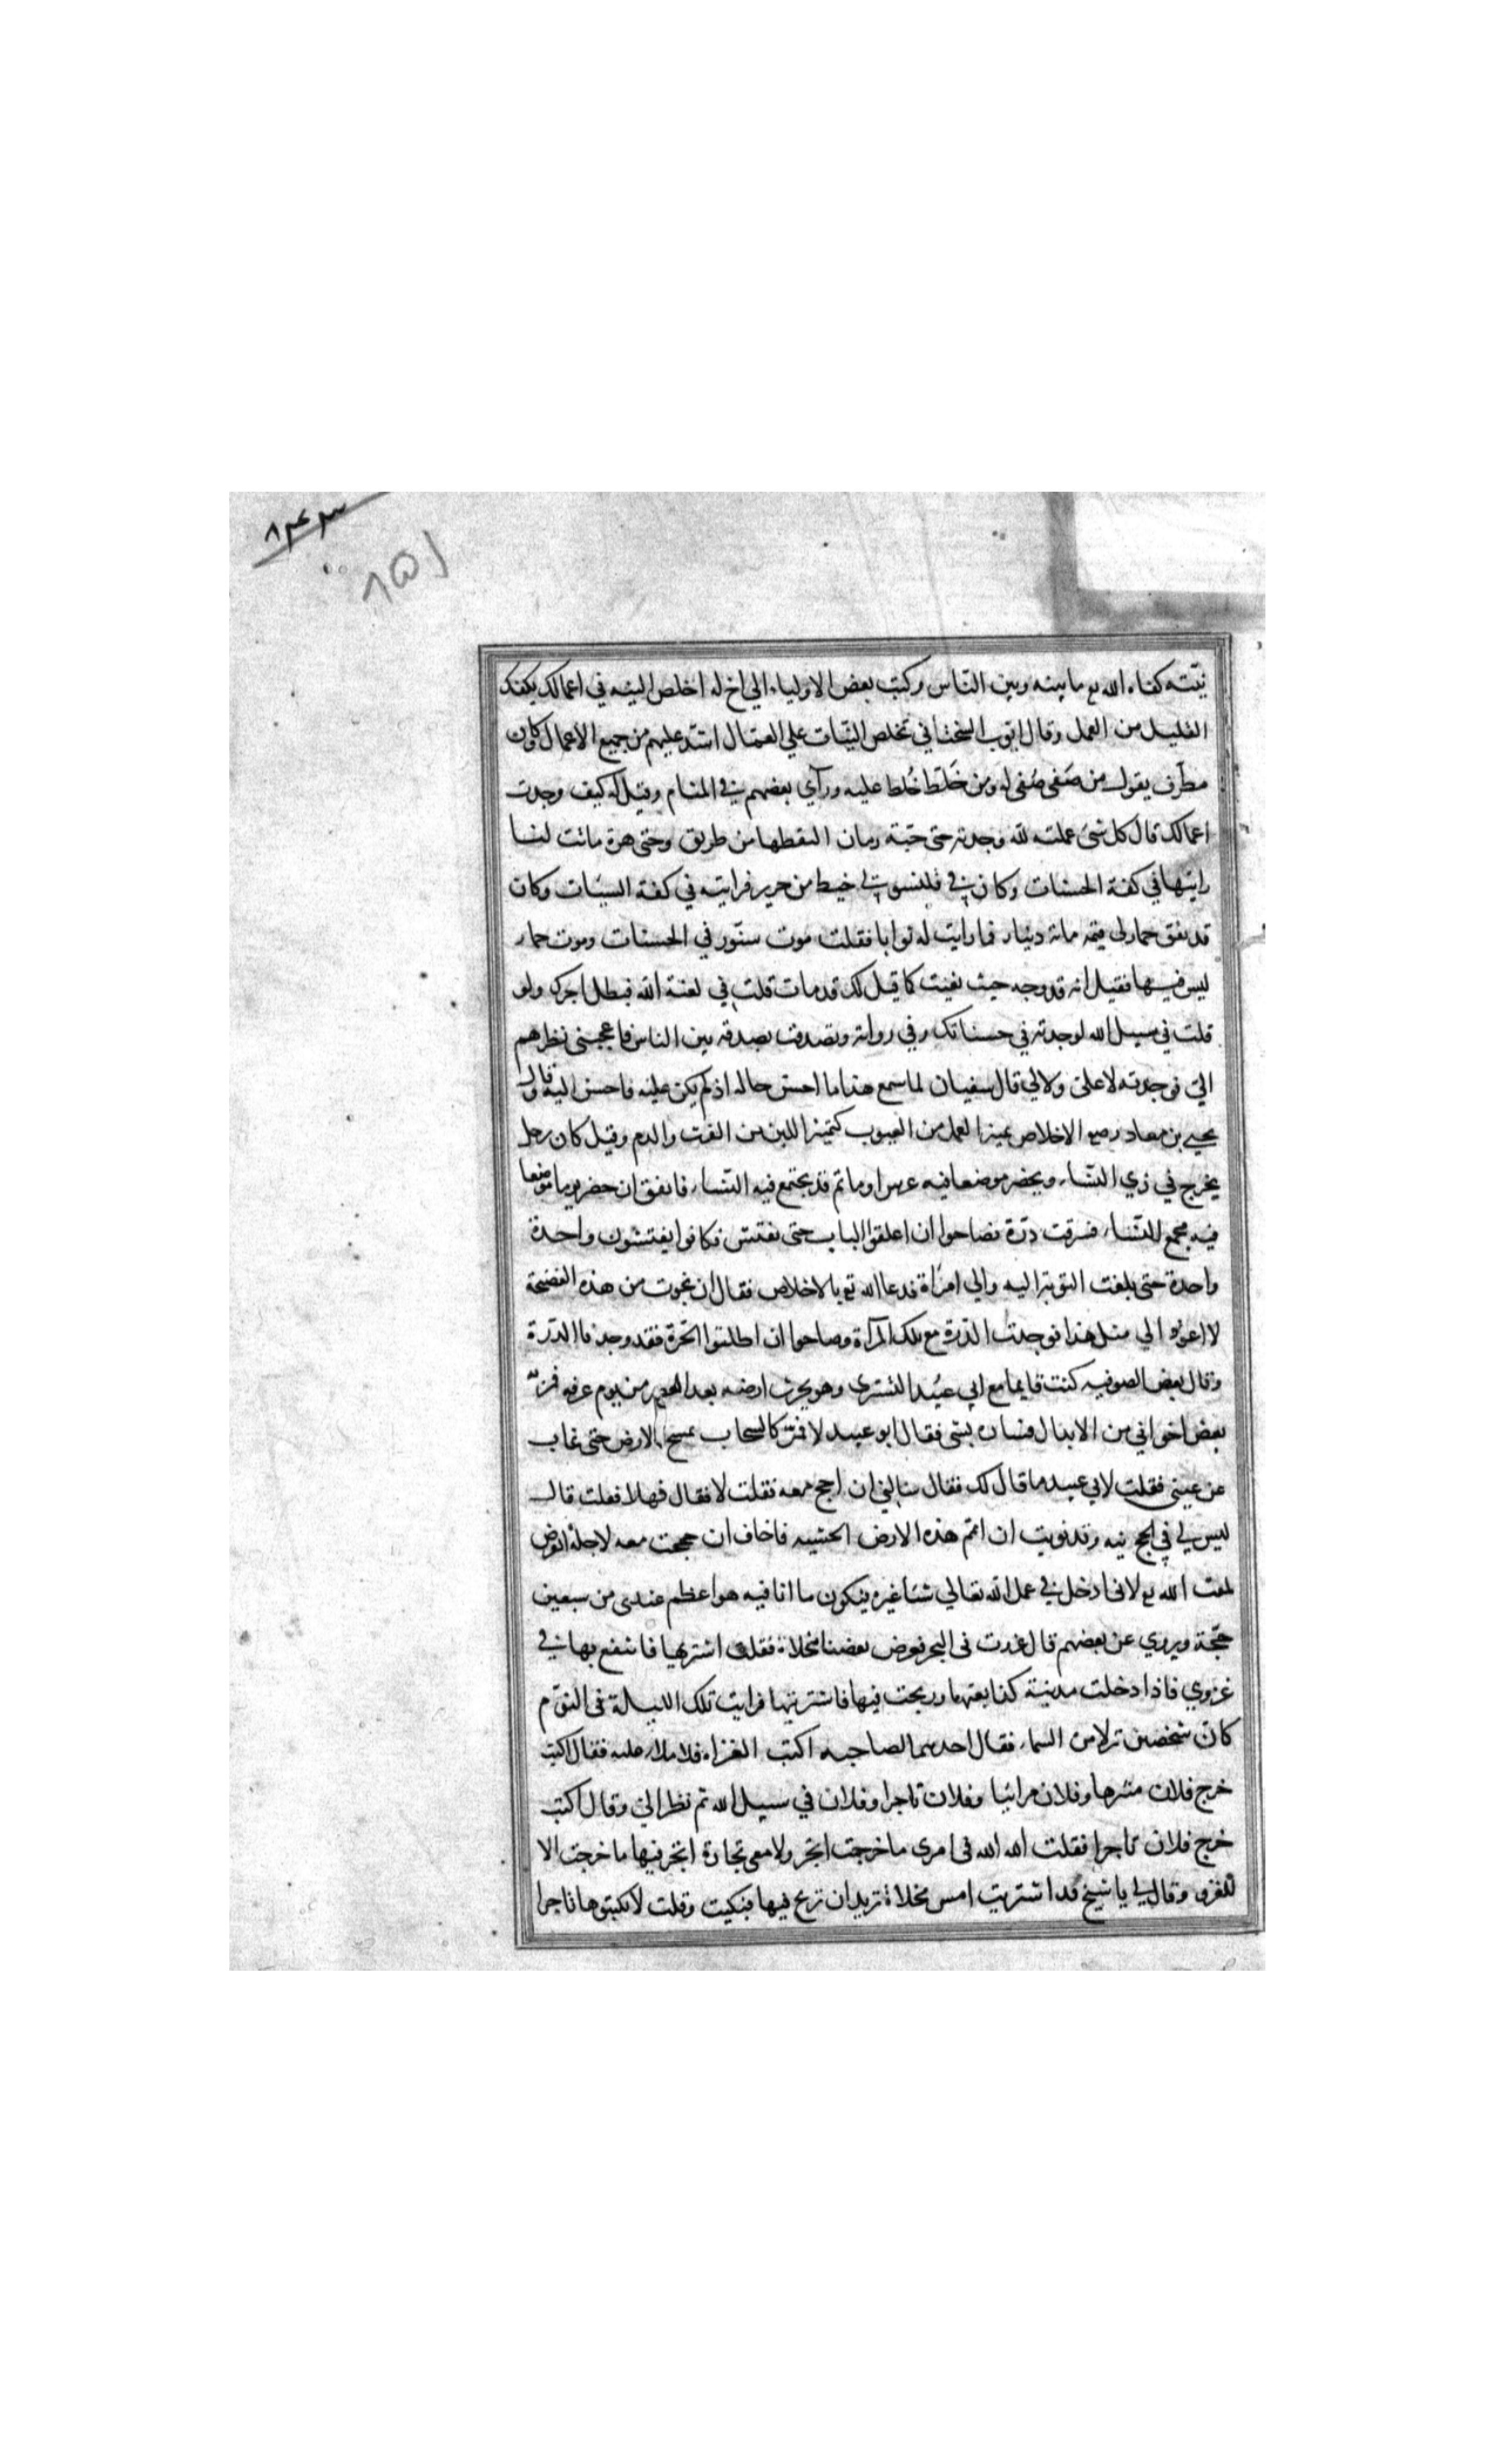 ٨٤٣
٨٥١
نيته كفاه الله تع ما بينه وبين الناس وكتب بعض الاولياء الي اخ له اخلص النيه في اعمالك يكفك
القليل من العمل وقال ايوب السختياني تخلص النيات علي العمال اشد عليهم من جميع الاعمال وكان
مطرف يقول من صَفي صُفي له ومن خَلَّط خُلط عليه ورآي بعضهم في المنام وقيل له كيف وجدت
اعمالك قال كل شئ عملته لله وجدته حتى حبة رمان التقطها من طريق وحتى هرة ماتت لنا
رايتها في كفة الحسنات وكان في قلنسوتي خيط من حرير فرايته في كفة السيئات وكان
قد نفق حمار لى قيمته مائة دينار فما رايت له ثوابا فقلت موت سنّور في الحسنات وموت حمار
ليس فيها فقيل انه قد وجه حيث بعثت كما قيل لك قد مات قلت في لعنة الله فبطل اجرك ولو
قلت في سبيل الله لوجدته في حسناتك وفي رواته وتصدقت بصدقه بين الناس فاعجبنى نظرهم
اليّ فوجدته لا علىّ ولا لي قال سفيان لما سمع هذا ما احسن حاله اذ لم يكن عليه فاحسن اليه وقال
يحيي بن معاد رصي الاخلاص يميز العمل من العيوب كتميز اللبن من الفرث والدم وقيل كان رجل
يخرج في زي النساء ويحضر موضعا فيه عرس او ماتم قد يجتمع فيه النساء فاتفق ان حضر يوما موضعا
فيه مجمع للنساء فسرقت درّة فصاحوا ان اغلقوا الباب حتى نفتش فكانوا يفتشون واحدة
واحدة حتى بلغت النوبة اليه والي امرأة فدعا الله تع بالاخلاص فقال ان نجوت من هذه الفضيحة
لا اعود الي مثل هذا فوجدت الدرة مع تلك المرآة وصاحوا ان اطلقوا الحرة فقد وجدنا الدرة
وقال بعض الصوفيه كنت قايما مع ابي عبيد التسترى وهو يحرث ارضه بعد العصر من يوم عرفه فمرّ به
بعض اخواني من الابدال فساره بشى فقال ابو عبيد لا فمرّ كالسحاب يمسح الارض حتى غاب
عن عينى فقلت لابي عبيد ما قال لك فقال سالني ان احج معه فقلت لا فقال فهلا فعلت قال
ليس لي في الحج نيه وقد نويت ان اتمم هذه الارض العشيه فاخاف ان حججت معه لاجله اتعرض
لمقت الله تع لانى ادخل في عمل الله تعالي شئا غيره فيكون ما انا فيه هو اعظم عندى من سبعين
حجّة ويروي عن بعضهم قال غزوت فى البحر فعرض بعضنا مخلاة فقلت اشتريها فانتفع بها في
غزوي فاذا دخلت مدينة كذا بعتها وربحت فيها فاشتريتها فرايت تلك الليلة فى النوم
كان شخصين نزلا من السماء فقال احدهما لصاحبه اكتب الغزاه فاملا عليه فقال اكتب
خرج فلان متنزها وفلان مرائيا وفلان تاجرا وفلان في سبيل الله ثم نظر الىّ وقال اكتب
خرج فلان تاجرا فقلت الله الله فى امرى ما خرجت اتجر ولا معى تجارة اتجر فيها ما خرجت الا
للغزو وقال لي يا شيخ قد اشتريت امس مخلاة تريد ان تربح فيها فبكيت وقلت لا تكتبوها تاجرا